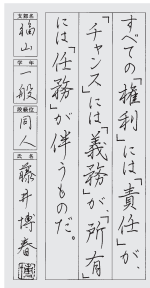 すべての「権利」には「責任」が、
「チャンス」には「義務」が「所有」
には「任務」が伴うものだ。
支部名
福山
学年
一般
段級位
同人
氏名
藤井博春